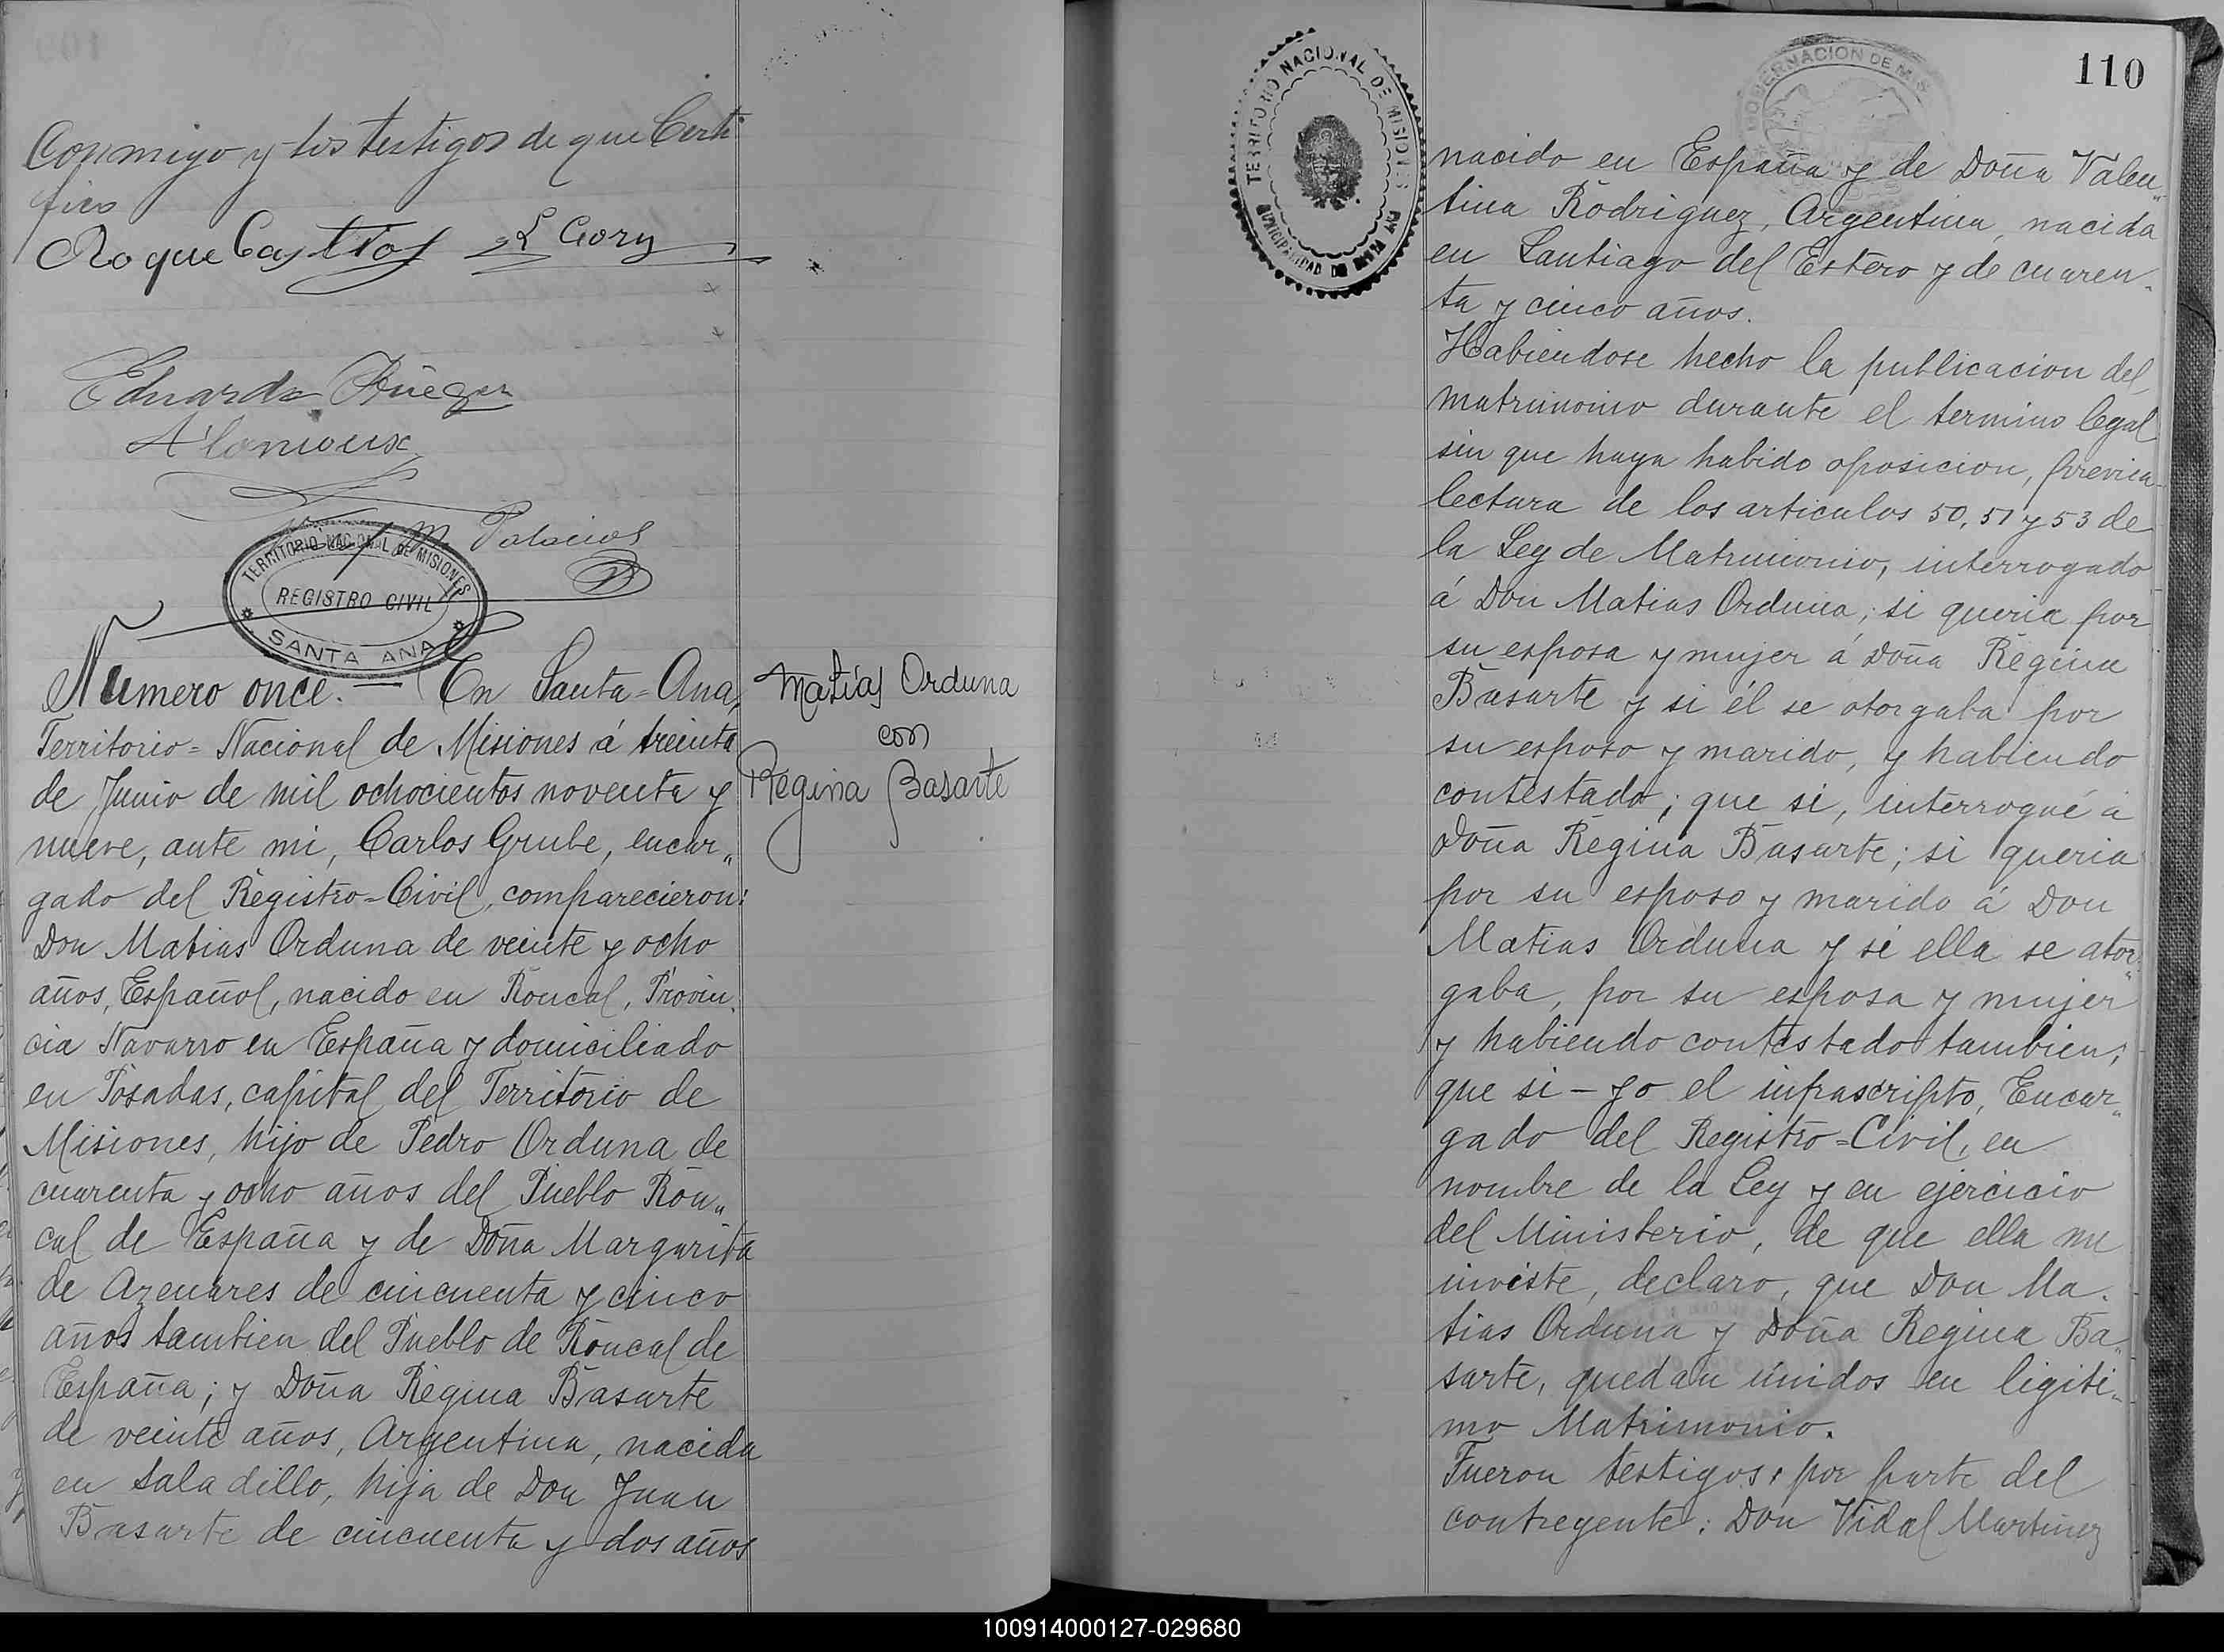 Conmigo y los testigos de que Certi
fico
Roque Castro
Eduardo
TERRITORIO NACIONAL DE MISIONES
REGISTRO CIVIL
SANTA ANA
M Palacios
Numero once. — En Santa=Ana,
Territorio=Nacional de Misiones á treinta
de Junio de mil ochocientos noventa y
nueve, ante mi, Carlos Grube, encar„
gado del Registro=Civil, comparecieron:
Don Matias Orduna de veinte y ocho
años, Español, nacido en Roncal, Provin.
cia Navarro en España y domiciliado
en Posadas, capital del Territorio de
Misiones, hijo de Pedro Orduna de
cuarenta y ocho años del Pueblo Ron„
cal de España y de Doña Margarita
de Azenares de cincuenta y cinco
años tambien del Pueblo de Roncal de
España; y Doña Regina Basarte
de veinte años, Argentina, nacida
en Saladillo, hija de Don Juan
Basarte de cincuenta y dos años
Matías Orduna
con
Regina Basarte
TERRITORIO NACIONAL DE MISIONES
MUNICIPALIDAD DE
GOBERNACION DE MIS
110
nacido en España y de Doña Valen„
tina Rodriguez, Argentina, nacida
en Santiago del Estero y de cuaren-
ta y cinco años.
Habiendose hecho la publicacion del
matrimonio durante el termino legal
sin que haya habido oposicion, previa
lectura de los articulos 50, 51 y 53 de
la Ley de Matrimonio, interrogado
á Don Matias Orduna; si queria por
su esposa y mujer á Doña Regina
Basarte y si él se otorgaba por
su esposo y marido, y habiendo
contestado; que si, interrogué á
Doña Regina Basarte; si queria
por su esposo y marido á Don
Matias Orduna y si ella se otor„
gaba, por su esposa y mujer
y habiendo contestado tambien;
que si – yo el infrascripto, Encar„
gado del Registro=Civil, en
nombre de la Ley y en ejercicio
del Ministerio, de que ella me
inviste, declaro, que Don Ma.
tias Orduna y Doña Regina Ba„
sarte, quedan únidos en ligiti„
mo Matrimonio.
Fueron testigos, por parte del
contregente: Don Vidal Martinez
100914000127-029680